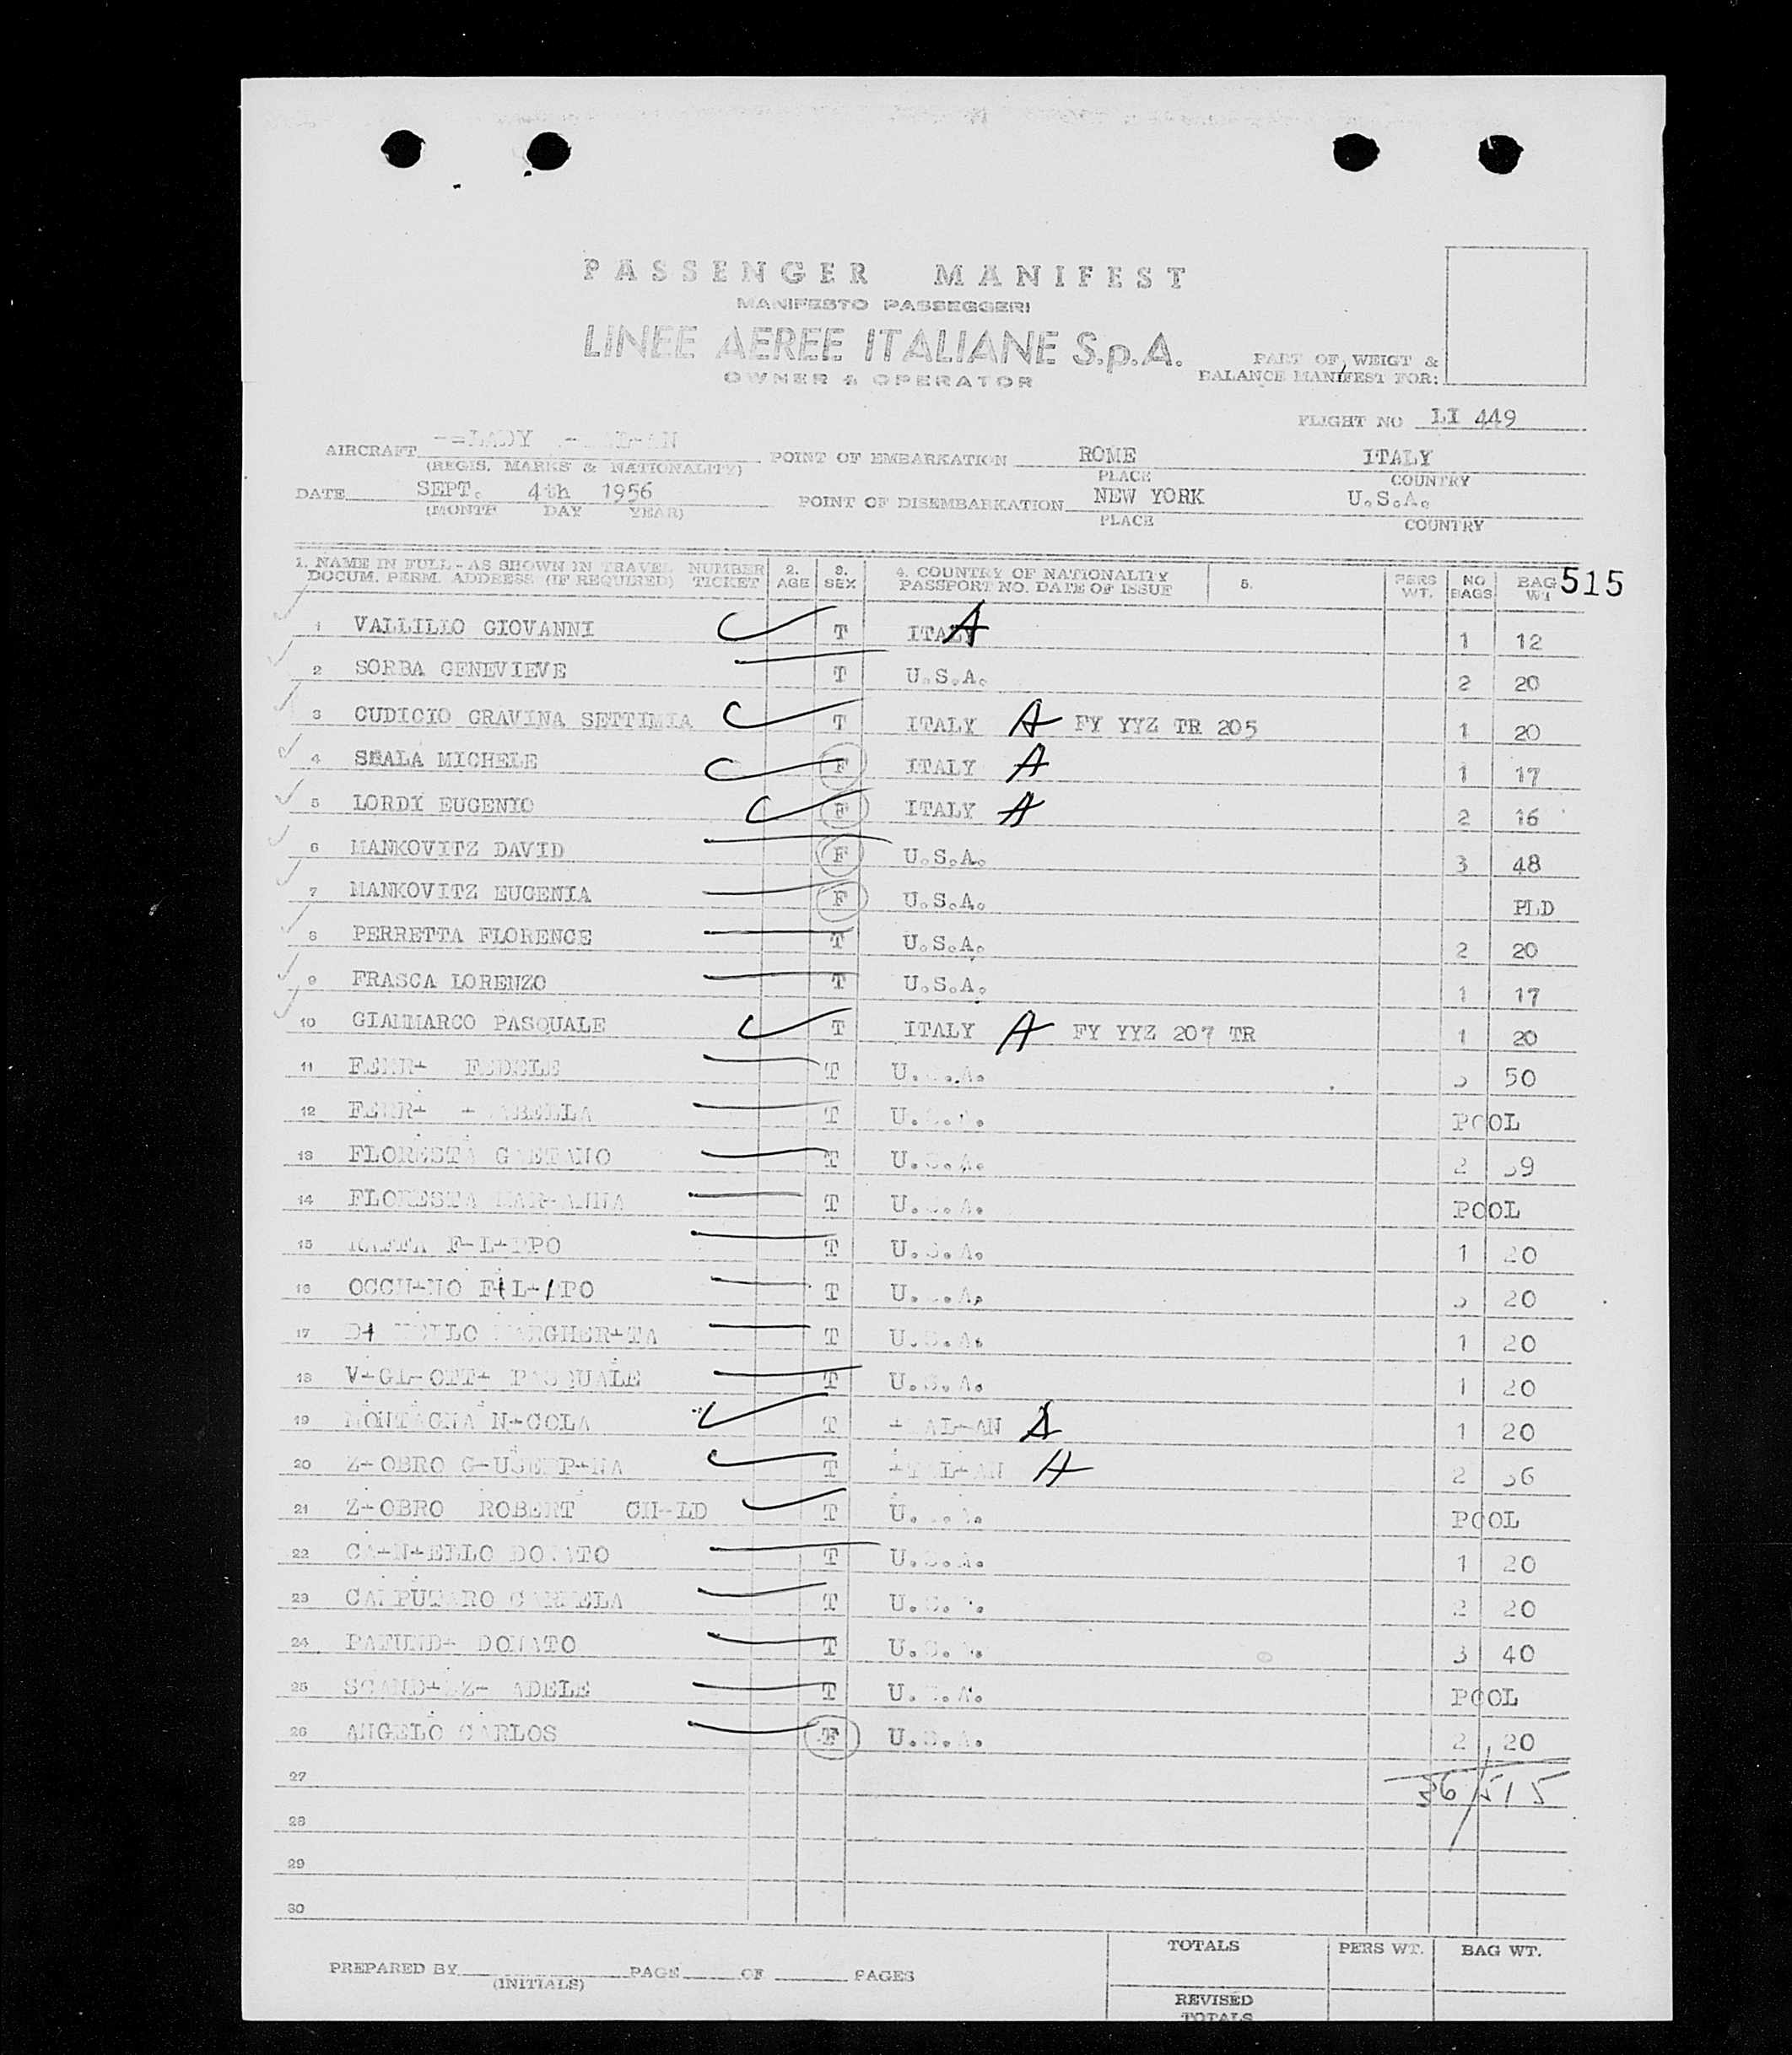 PASSENGER MANIFEST
MANIFESTO PASSEGGERI
LINEE AEREE ITALIANE S.p.A.
OWNER & OPERATOR
PART OF WEIGT &
BALANCE MANIFEST FOR:
FLIGHT NO LI 449
AIRCRAFT -=LADY
(REGIS. MARKS & NATIONALITY)
POINT OF EMBARKATION ROME ITALY
PLACE COUNTRY
DATE SEPT. 4th 1956
(MONTH DAY YEAR)
POINT OF DISEMBARKATION NEW YORK U.S.A.
PLACE COUNTRY
1. NAME IN FULL - AS SHOWN IN TRAVEL DOCUM. PERM. ADDRESS (IF REQUIRED) NUMBER TICKET 2. AGE 3. SEX 4. COUNTRY OF NATIONALITY PASSPORT NO. DATE OF ISSUE 5. PERS WT. NO BAGS BAG WT 515
1 VALLILIO GIOVANNI T ITALY A 1 12
2 SORBA GENEVIEVE T U.S.A. 2 20
3 CUDICIO GRAVINA SETTIMIA T ITALY A FY YYZ TR 205 1 20
4 SCALA MICHELE F ITALY A 1 17
5 LORDY EUGENIO F ITALY A 2 16
6 MANKOVITZ DAVID F U.S.A. 3 48
7 MANKOVITZ EUGENIA F U.S.A. PLD
8 PERRETTA FLORENCE T U.S.A. 2 20
9 FRASCA LORENZO T U.S.A. 1 17
10 GIAMMARCO PASQUALE T ITALY A FY YYZ 207 TR 1 20
11 FERR+ FEDELE T U.S.A. 3 50
12 FERR+ T U.S.A. POOL
13 FLORESTA GAETANO T U.S.A. 2 39
14 FLORESTA MAR-ANNA T U.S.A. POOL
15 F-L+PPO T U.S.A. 1 20
16 OCCH+NO F+L-PPO T U.S.A. 3 20
17 D+ MARGHER+TA T U.S.A. 1 20
18 V+GL-OTT+ PASQUALE T U.S.A. 1 20
19 MONTAGNA N+COLA T +TAL-AN A 1 20
20 Z-OBRO G-USEPP+NA T +TAL+AN A 2 36
21 Z+OBRO ROBERT CH-LD T U.S.A. POOL
22 CA+N+ELLO DONATO T U.S.A. 1 20
23 CAMPUTARO CARMELA T U.S.A. 2 20
24 PAFUND+ DONATO T U.S.A. 3 40
25 ADELE T U.S.A. POOL
26 ANGELO CARLOS F U.S.A. 2 20
27 36/515
28
29
30
PREPARED BY (INITIALS) PAGE OF PAGES
TOTALS PERS WT. BAG WT.
REVISED
TOTALS